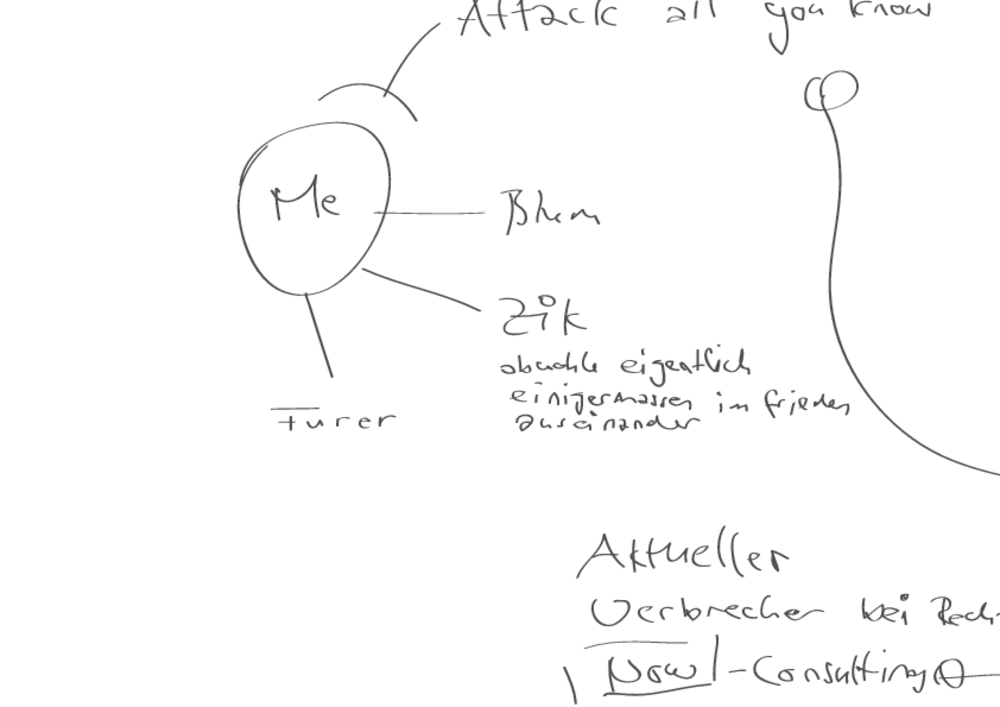 Attack all you know
Me
Zik
eigentlich
einigermassen im frieden
auseinander
Furer
Aktueller
Verbrecher bei Rech
Now-Consulting